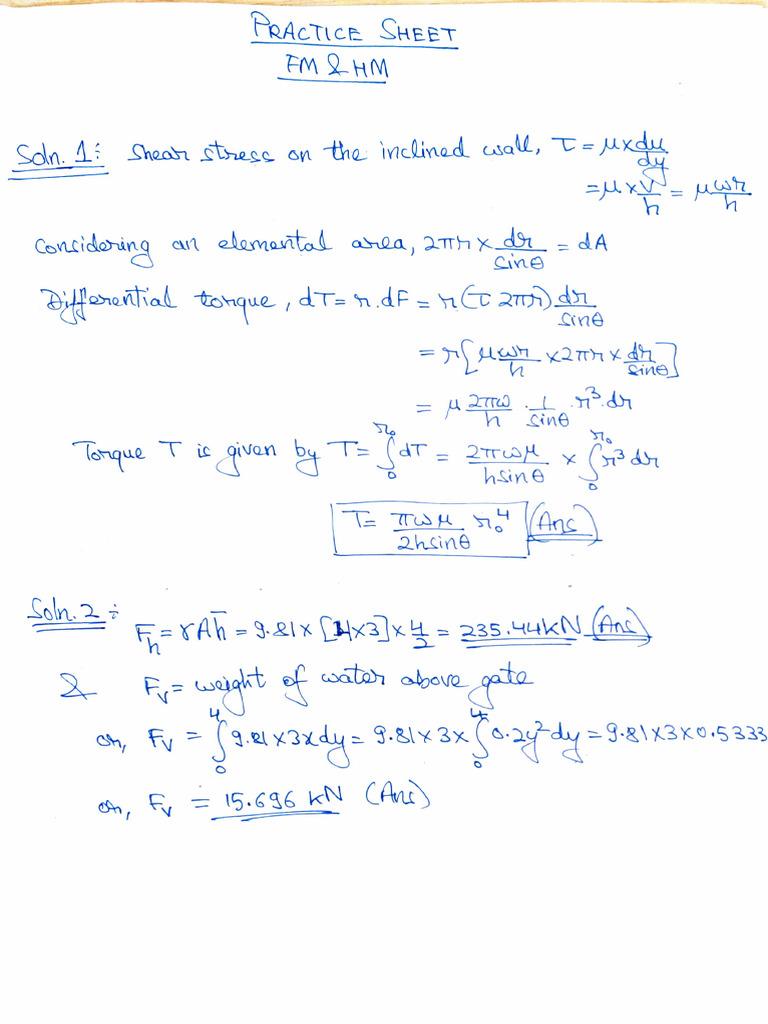 PRACTICE SHEET
FM & HM
Soln. 1: Shear stress on the inclined wall, τ = μ x du/dy
= μ x V/h = μωr/h
Considering an elemental area, 2πr x dr/sinθ = dA
Differential torque, dT = r.dF = r(τ 2πr) dr/sinθ
= r[μωr/h x 2πr x dr/sinθ]
= μ 2πω/h . 1/sinθ . r³.dr
Torque T is given by T = ∫₀^r₀ dT = 2πωμ/hsinθ x ∫₀^r₀ r³ dr
T = πωμ/2hsinθ r₀⁴ (Ans)
Soln. 2 : F_h = γAh̄ = 9.81 x [4x3] x 4/2 = 235.44KN (Ans)
& F_v = weight of water above gate
or, F_v = ∫₀⁴ 9.81 x 3xdy = 9.81 x 3 x ∫₀⁴ 0.2y² dy = 9.81 x 3 x 0.5333
or, F_v = 15.696 KN (Ans)